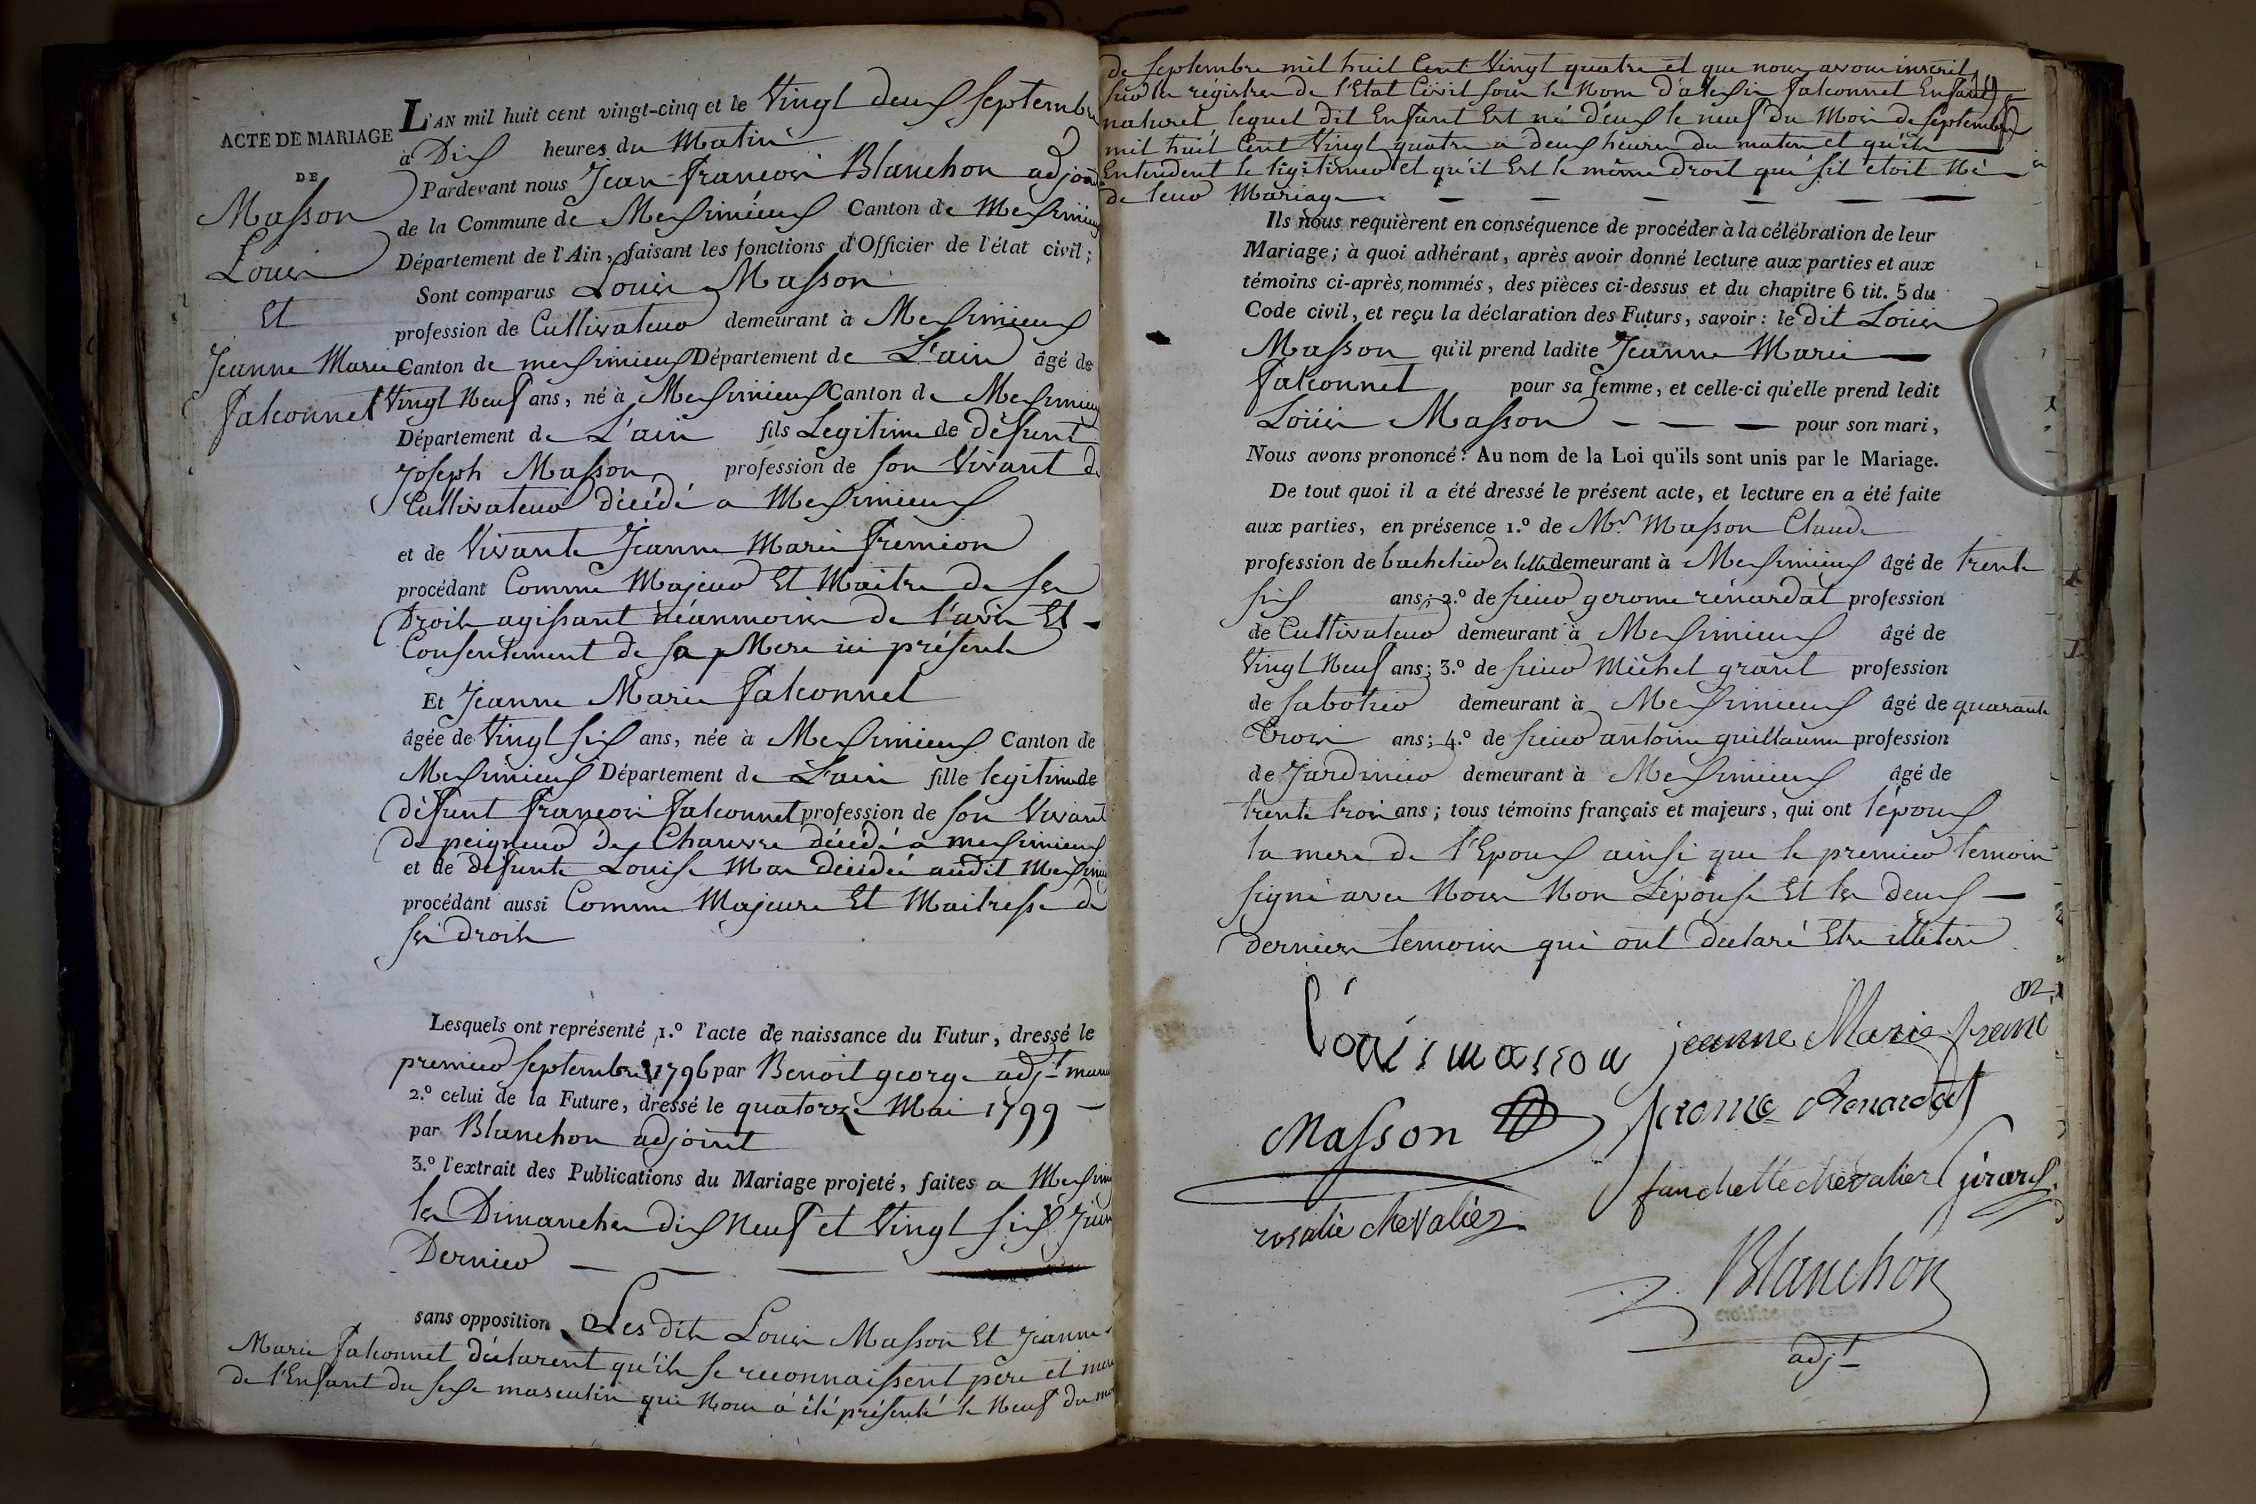 ACTE DE MARIAGE
DE
Masson
Louis
Et
Jeanne Marie
falconnet
L'AN mil huit cent vingt-cinq et le Vingt deux septembre
à Dix heures du Matin
Pardevant nous Jean francois Blanchon adjoint
de la Commune de Meximieux Canton de Meximieux
Département de l'Ain, faisant les fonctions d'Officier de l'état civil;
Sont comparus Louis Masson
profession de Cultivateur demeurant à Meximieux
Canton de meximieux Département de L'ain âgé de
Vingt Neuf ans, né à Meximieux Canton de Meximieux
Département de L'ain fils Legitime de défunt
Joseph Masson profession de son Vivant de
Cultivateur décédé a Meximieux
et de Vivante Jeanne Marie fremion
procédant Comme Majeur Et Maitre de ses
Droits agissant néanmoins de l'avis Et
Consentement de sa Mere ici présente
Et Jeanne Marie falconnet
âgée de Vingt six ans, née à Meximieux Canton de
Meximieux Département de L'ain fille legitime de
défunt françois falconnet profession de son Vivant
de peigneur de Chanvre décédé a meximieux
et de defunte Louise Mas décédée audit Meximieux
procédant aussi Comme Majeure Et Maitresse de
ses droits
Lesquels ont représenté 1.º l'acte de naissance du Futur, dressé le
premier septembre 1796 par Benoit george adjt
2.º celui de la Future, dressé le quatorze Mai 1799
par Blanchon adjoint
3.º l'extrait des Publications du Mariage projeté, faites a Meximieux
les Dimanches dix Neuf et Vingt six Juin
Dernier
sans opposition Les dits Louis Masson Et Jeanne
Marie falconnet déclarent qu'ils se reconnaissent père et mere
de l'Enfant du sexe masculin qui Nous a été présenté le Neuf du mois
de septembre mil huit Cent Vingt quatre et que nous avons inscrit
sur les régistres de l'Etat Civil sous le Nom d'alexis falconnet Enfant
naturel lequel dit Enfant Est né d'eux le neuf du Mois de septembre
mil huit Cent Vingt quatre a deux heures du matin et qu'ils
Entendent le légitimer et qu'il Est le même droit que s'il etoit Né
de leur Mariage.
Ils nous requièrent en conséquence de procéder à la célébration de leur
Mariage; à quoi adhérant, après avoir donné lecture aux parties et aux
témoins ci-après nommés, des pièces ci-dessus et du chapitre 6 tit. 5 du
Code civil, et reçu la déclaration des Futurs, savoir: le dit Louis
Masson qu'il prend ladite Jeanne Marie
falconnet pour sa femme, et celle-ci qu'elle prend ledit
Louis Masson pour son mari,
Nous avons prononcé: Au nom de la Loi qu'ils sont unis par le Mariage.
De tout quoi il a été dressé le présent acte, et lecture en a été faite
aux parties, en présence 1.º de Mr Masson Claude
profession de bachelier es lettre demeurant à Meximieux âgé de trente
six ans; 2.º de sieur gerome rénardat profession
de Cultivateur demeurant à Meximieux âgé de
Vingt Neuf ans; 3.º de sieur Michel grant profession
de sabotier demeurant à Meximieux âgé de quarante
trois ans; 4.º de sieur antoine guillaume profession
de Jardinier demeurant à Meximieux âgé de
trente trois ans; tous témoins français et majeurs, qui ont l'époux
la mere de l'Epoux ainsi que le premier temoin
signé avec Nous Non L'épouse Et les deux
Derniers temoins qui ont déclaré Etre illiterés
Louis masson jeanne Marie fremion
Masson Jerome Renardat
fanchette chevalier Girard
rosalie chevalier
Blanchon
adjt